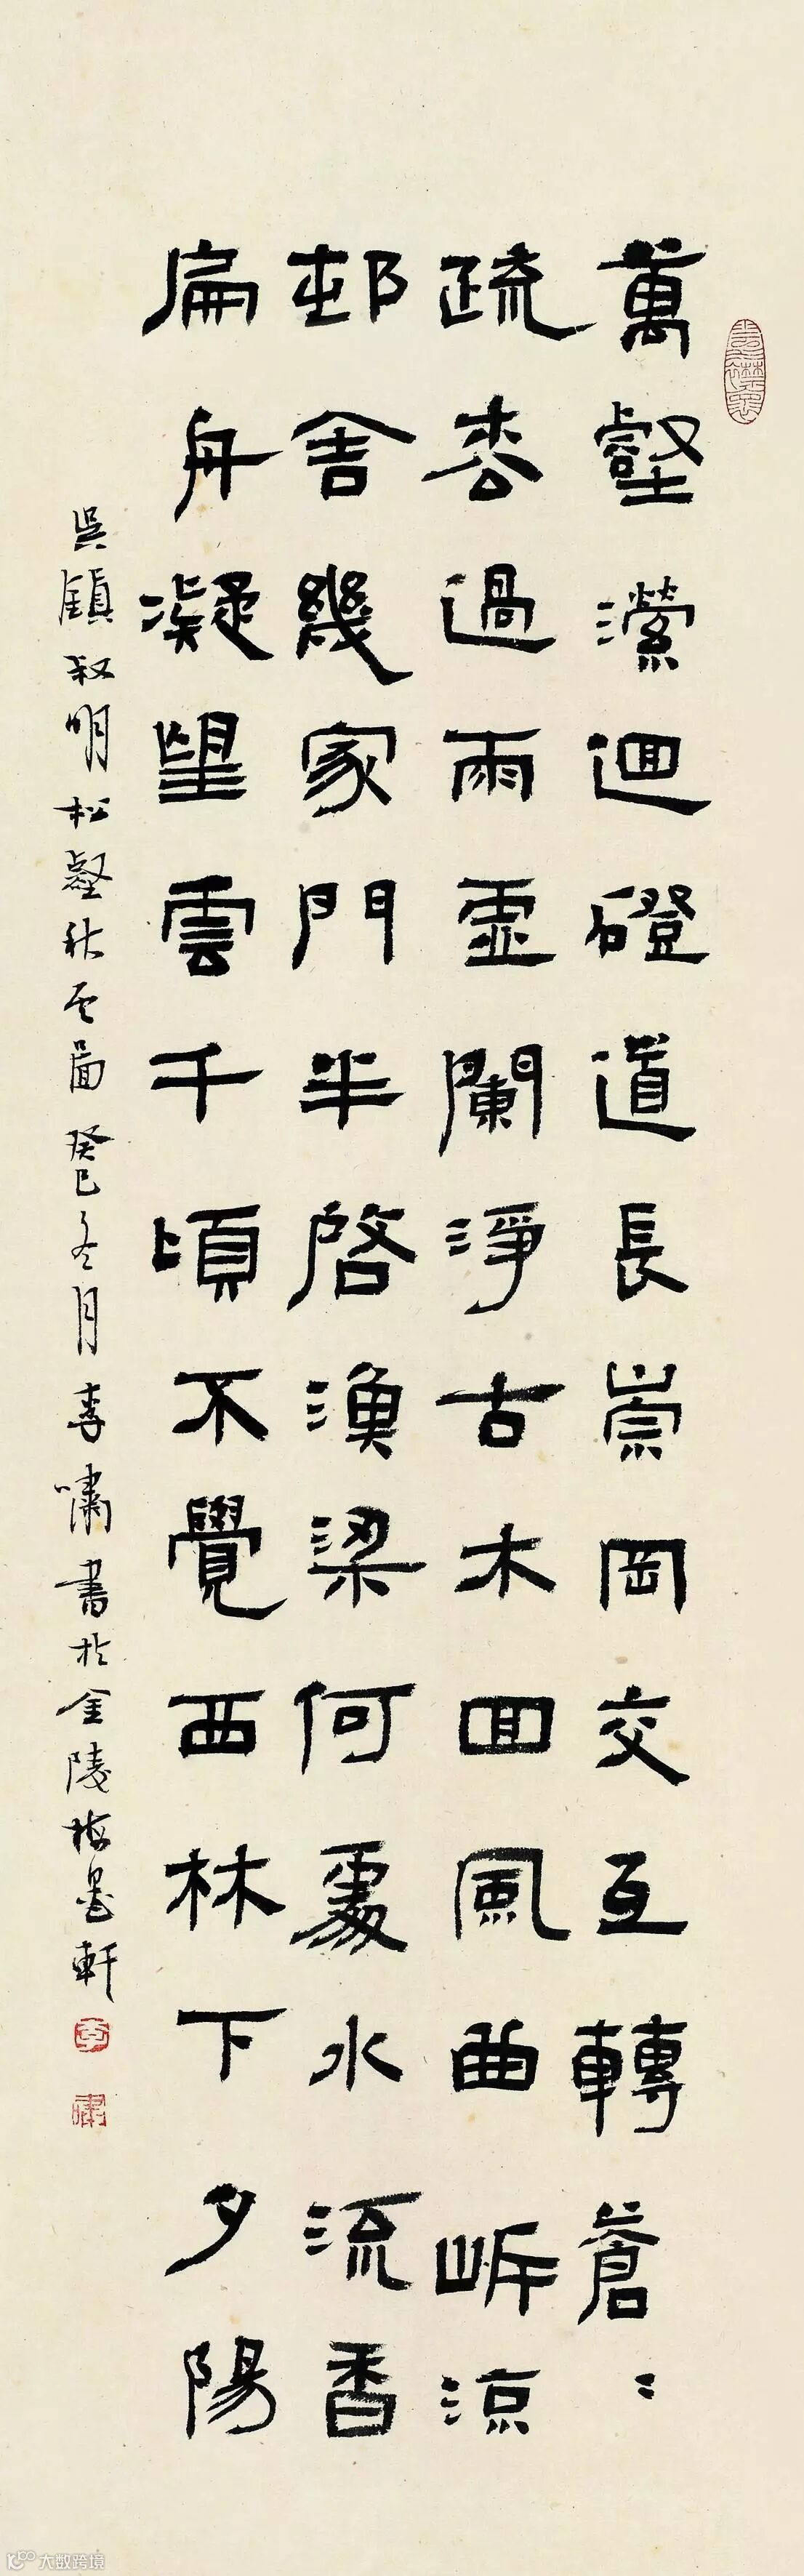 萬壑瀠迴磴道長崇岡交互轉蒼〻
疏松過雨虛闌淨古木回風曲岸涼
邨舍幾家門半啓漁梁何處水流香
扁舟凝望雲千頃不覺西林下夕陽
吳鎮叔明松壑秋云圖癸巳冬月李嘯書於金陵梅墨軒
李
嘯
大数跨境